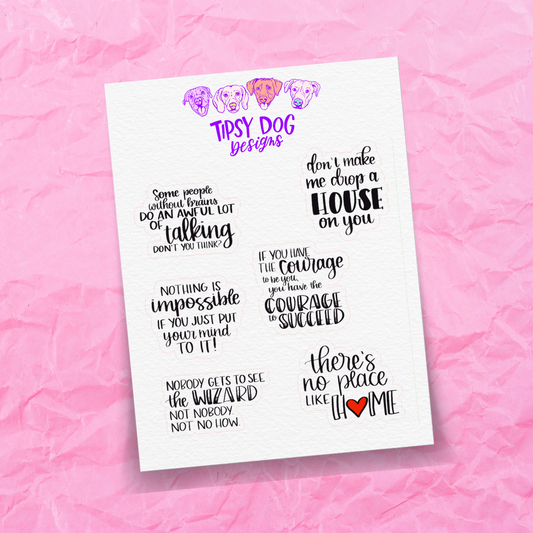 TIPSY DOG
Designs
don't make
me drop a
HOUSE
on you
Some people
without brains
DO AN AWFUL LOT
OF talking
DON'T YOU THINK?
IF YOU HAVE
THE Courage
to be you,
you have the
COURAGE
to SUCCEED
NOTHING IS
impossible
IF YOU JUST PUT
your mind
TO IT!
there's
no place
LIKE HOME
NOBODY GETS TO SEE
the WIZARD
NOT NOBODY,
NOT NO HOW.